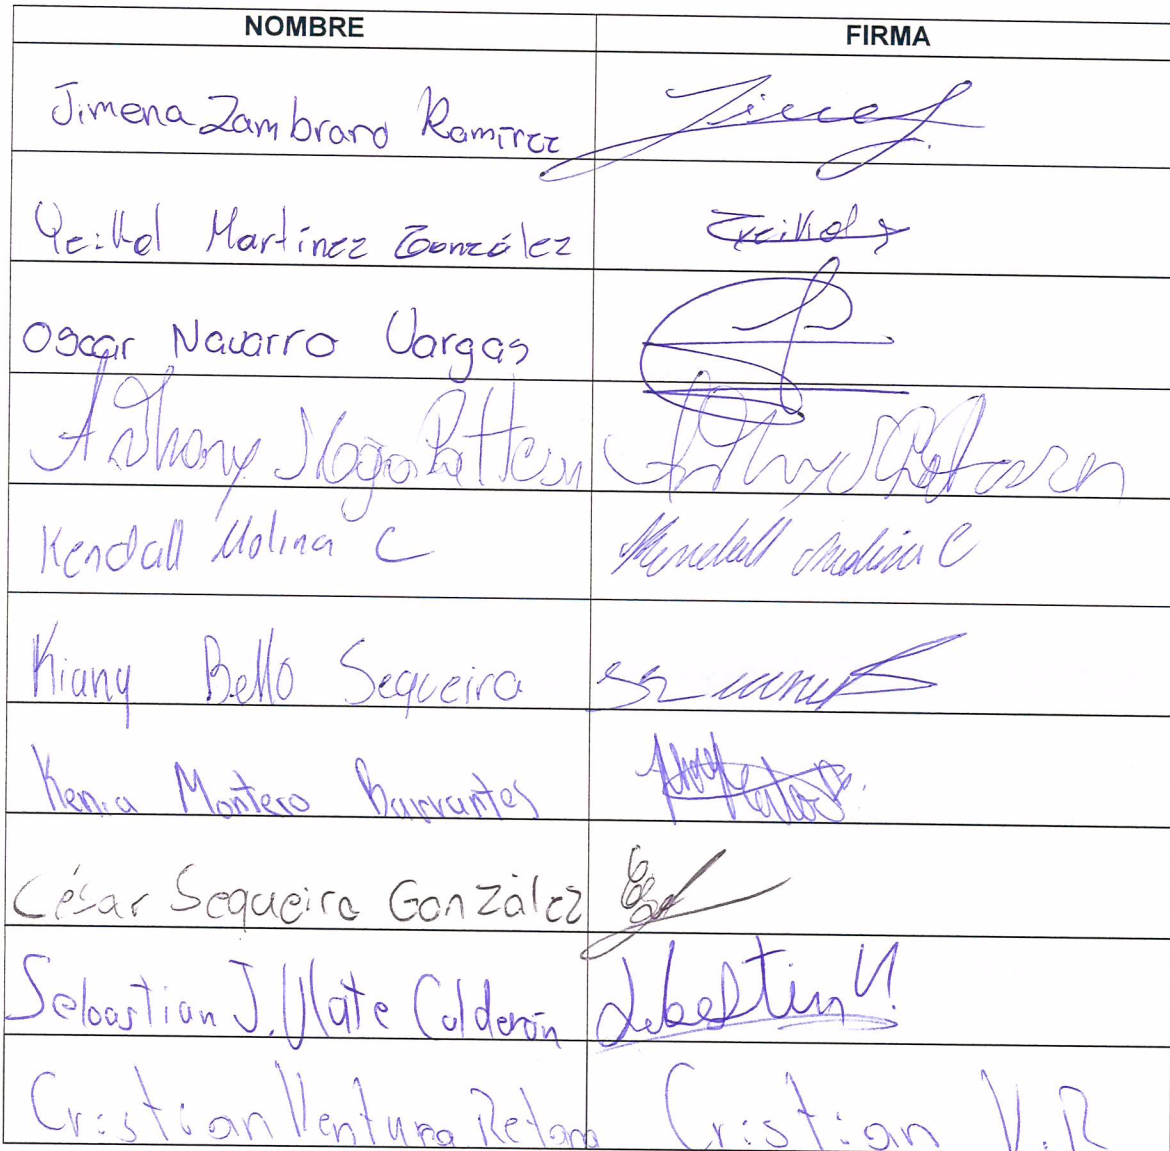 NOMBRE FIRMA
Jimena Zambrano Ramírez
Yeikol Martínez González Yeikol
Oscar Navarro Vargas
Anthony
Kendall Molina C Kendall Molina C
Kiany Bello Sequeira
Kenia Montero Barrantes
César Sequeira González
Sebastian J. Ulate Calderón Sebastian U.
Cristian Ventura Retana Cristian V.R